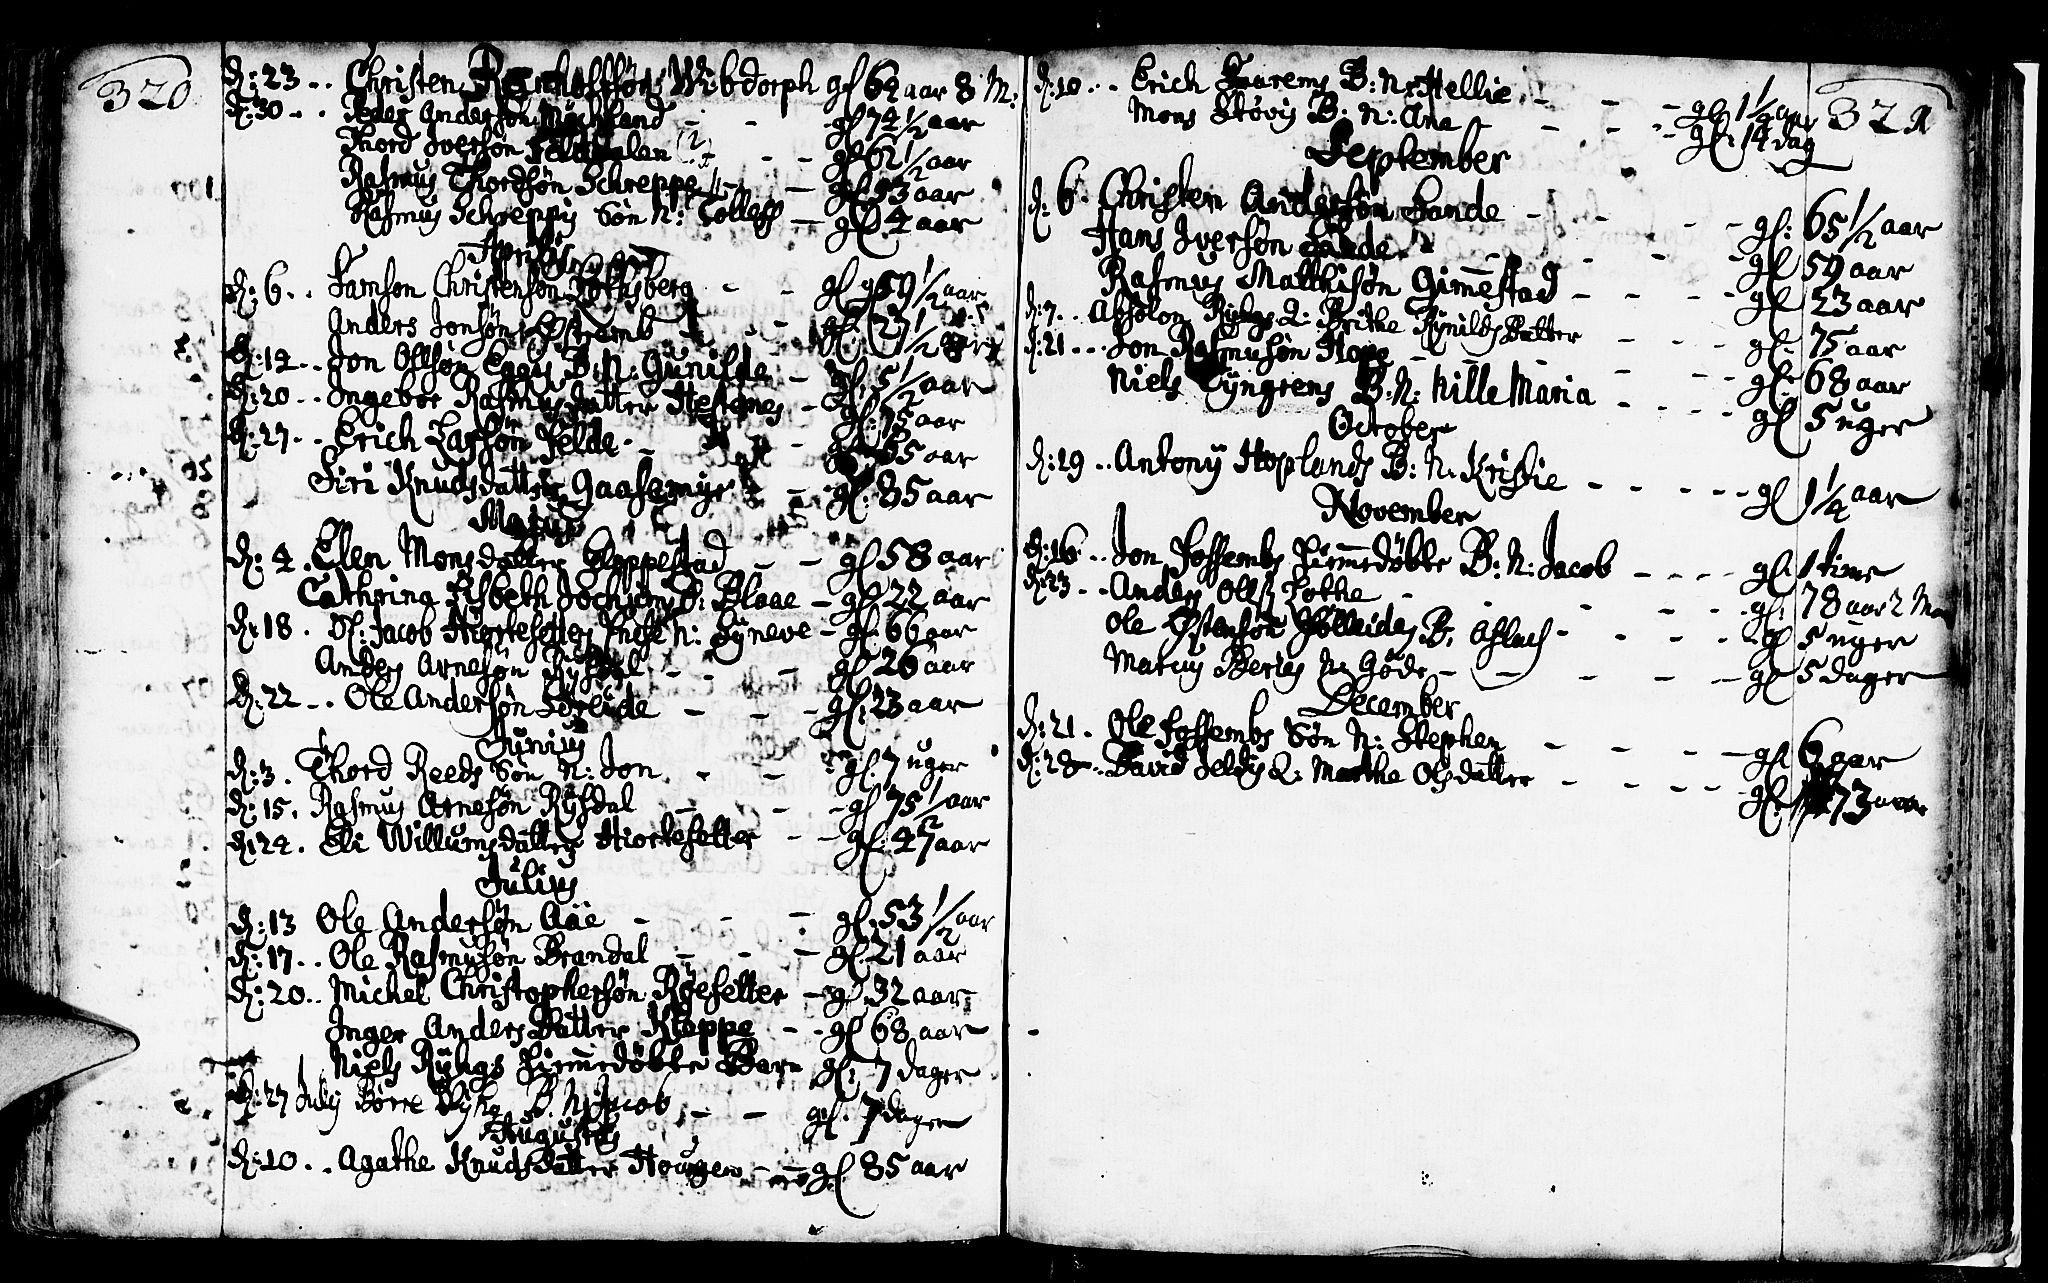 320
d: 23 .. Christen Wibdorph gl 64 aar 8 M:
d: 30 .. Peder Andersøn Myckland - - gl 74 1/2 aar
Thord Iversøn - - gl 62 1/2 aar
Rasmus Thordsøn Schreppen - gl 93 aar
Rasmus Schreppis Søn N: Tolless - gl. 4 aar
Aprilis
d: 6 .. Samson Christensøn - - gl 59 1/2 aar
Anders Jonsøn - gl. 27 1/2 aar
d: 14 .. Jon Ollsøn Eggis B: N: Gunilde - gl. 5 1/2 aar
d: 20 .. Ingebor Rasmusdatter Hestenes - gl. 75 aar
d: 27 .. Erich Larsøn Felde - - gl. 65 aar
Siri Knudsdatter Gaasemyr - gl. 85 aar
Majus
d: 4 . Elen Monsdatter Gloppestad - - gl 58 aar
Cathrina Lisbeth Jochums D: Blaae - gl. 22 aar
d: 18 . Sl: Jacob Hiortesetters N: Syneve - gl. 66 aar
Anders Arnesøn - - gl 26 aar
d: 22 .. Ole Andersøn Eide - - - gl. 23 aar
Junius
d: 3 . Thord Reeds Søn N: Jon - - gl. 7 uger
d: 15 . Rasmus Arnesøn Rysdal - - gl 75 1/2 aar
d: 24 . Eli Willumsdatter Hiortesetter - - gl. 47 aar
Julius
d: 13 Ole Andersøn Aae - - - gl. 53 1/2 aar
d: 17 .. Ole Rasmusøn Brandal - - - gl. 21 aar
d: 20 .. Michel Christophersøn Ryesetter - gl. 32 aar
Inger Anders Datter Kleppe - - gl 68 aar
Niels Ryhgs Fiermedøbte Barn gl: 7 dager
d: 27 July Børre Ryhg B. N: Jacob - - gl. 7 dager
Augustus
d: 10 .. Agathe Knuds Datter Hougen - - gl. 85 aar
321
d: 10 .. Erich B: N: Hellie - - - gl. 1 1/4 aar
Mons Støvis B: N: Ana - - - gl. 14 dag
September
d: 6 . Christen Andersøn Sande - - - gl. 65 1/2 aar
Hans Iversøn Sande - - - gl 59 aar
Rasmus Matthisøn Gimestad - - - gl 23 aar
d: 7 .. Absolon Ryhgs Q: Brithe Rynilds Datter - - gl. 75 aar
d: 21 ... Jon Rasmusøn Hope - - - gl. 68 aar
Niels Tyngrens B: N: Nille Maria - - - gl 5 uger
October
d: 19 .. Antony Hoplands B: N: Kristie - - - gl 1 1/4 aar
November
d: 16 .. Jon Fossembs Fiermedøbte B: N: Jacob - - - gl. 1 time
d: 23 .. Anders Olls: Lothe - - - gl. 78 aar 2 M
Ole Østensøn B: Aslach - - - gl 5 uger
Marcus N: Gøde - - - gl 5 dager
December
d: 21 . Ole Fossembs Søn N: Stephen - - - gl 6 aar
d: 28 .. David Feldis Q: Marthe Olsdatter - - - gl. 73 aar